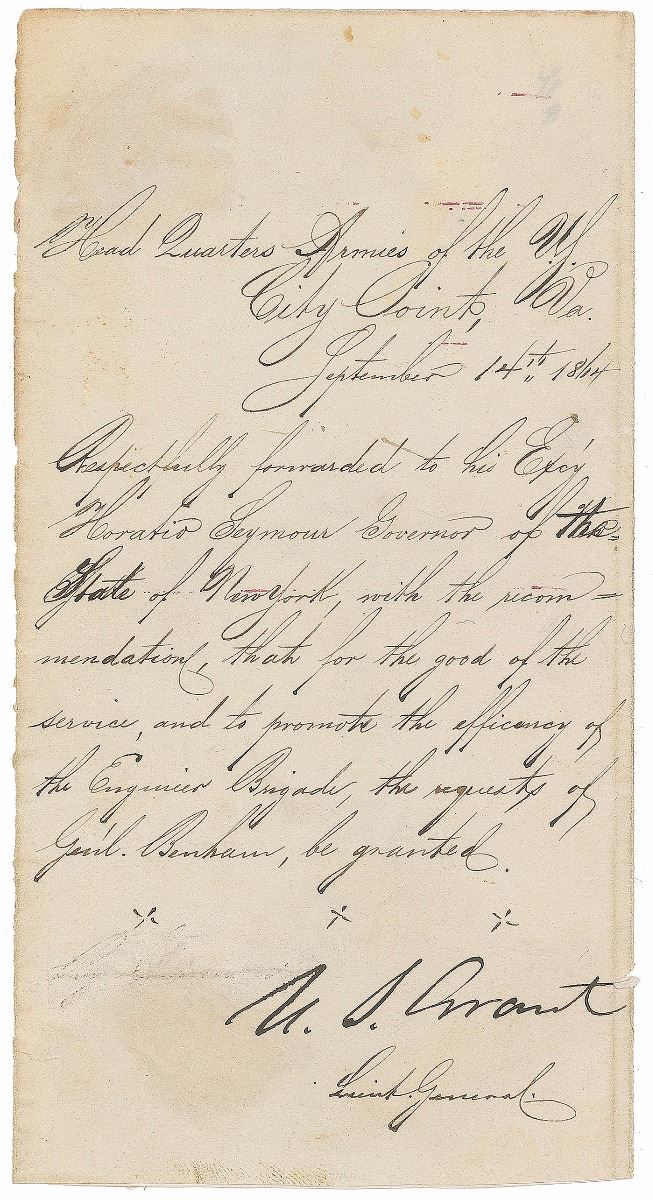 Head Quarters Armies of the U.S.
City Point, Va.
September 14th 1864
Respectfully forwarded to his Exc'y
Horatio Seymour Governor of the
State of New York, with the recom=
mendation, that for the good of the
service, and to promote the efficency of
the Engineer Brigade, the requests of
Gen'l. Benham, be granted.
U. S. Grant
Lieut. General.